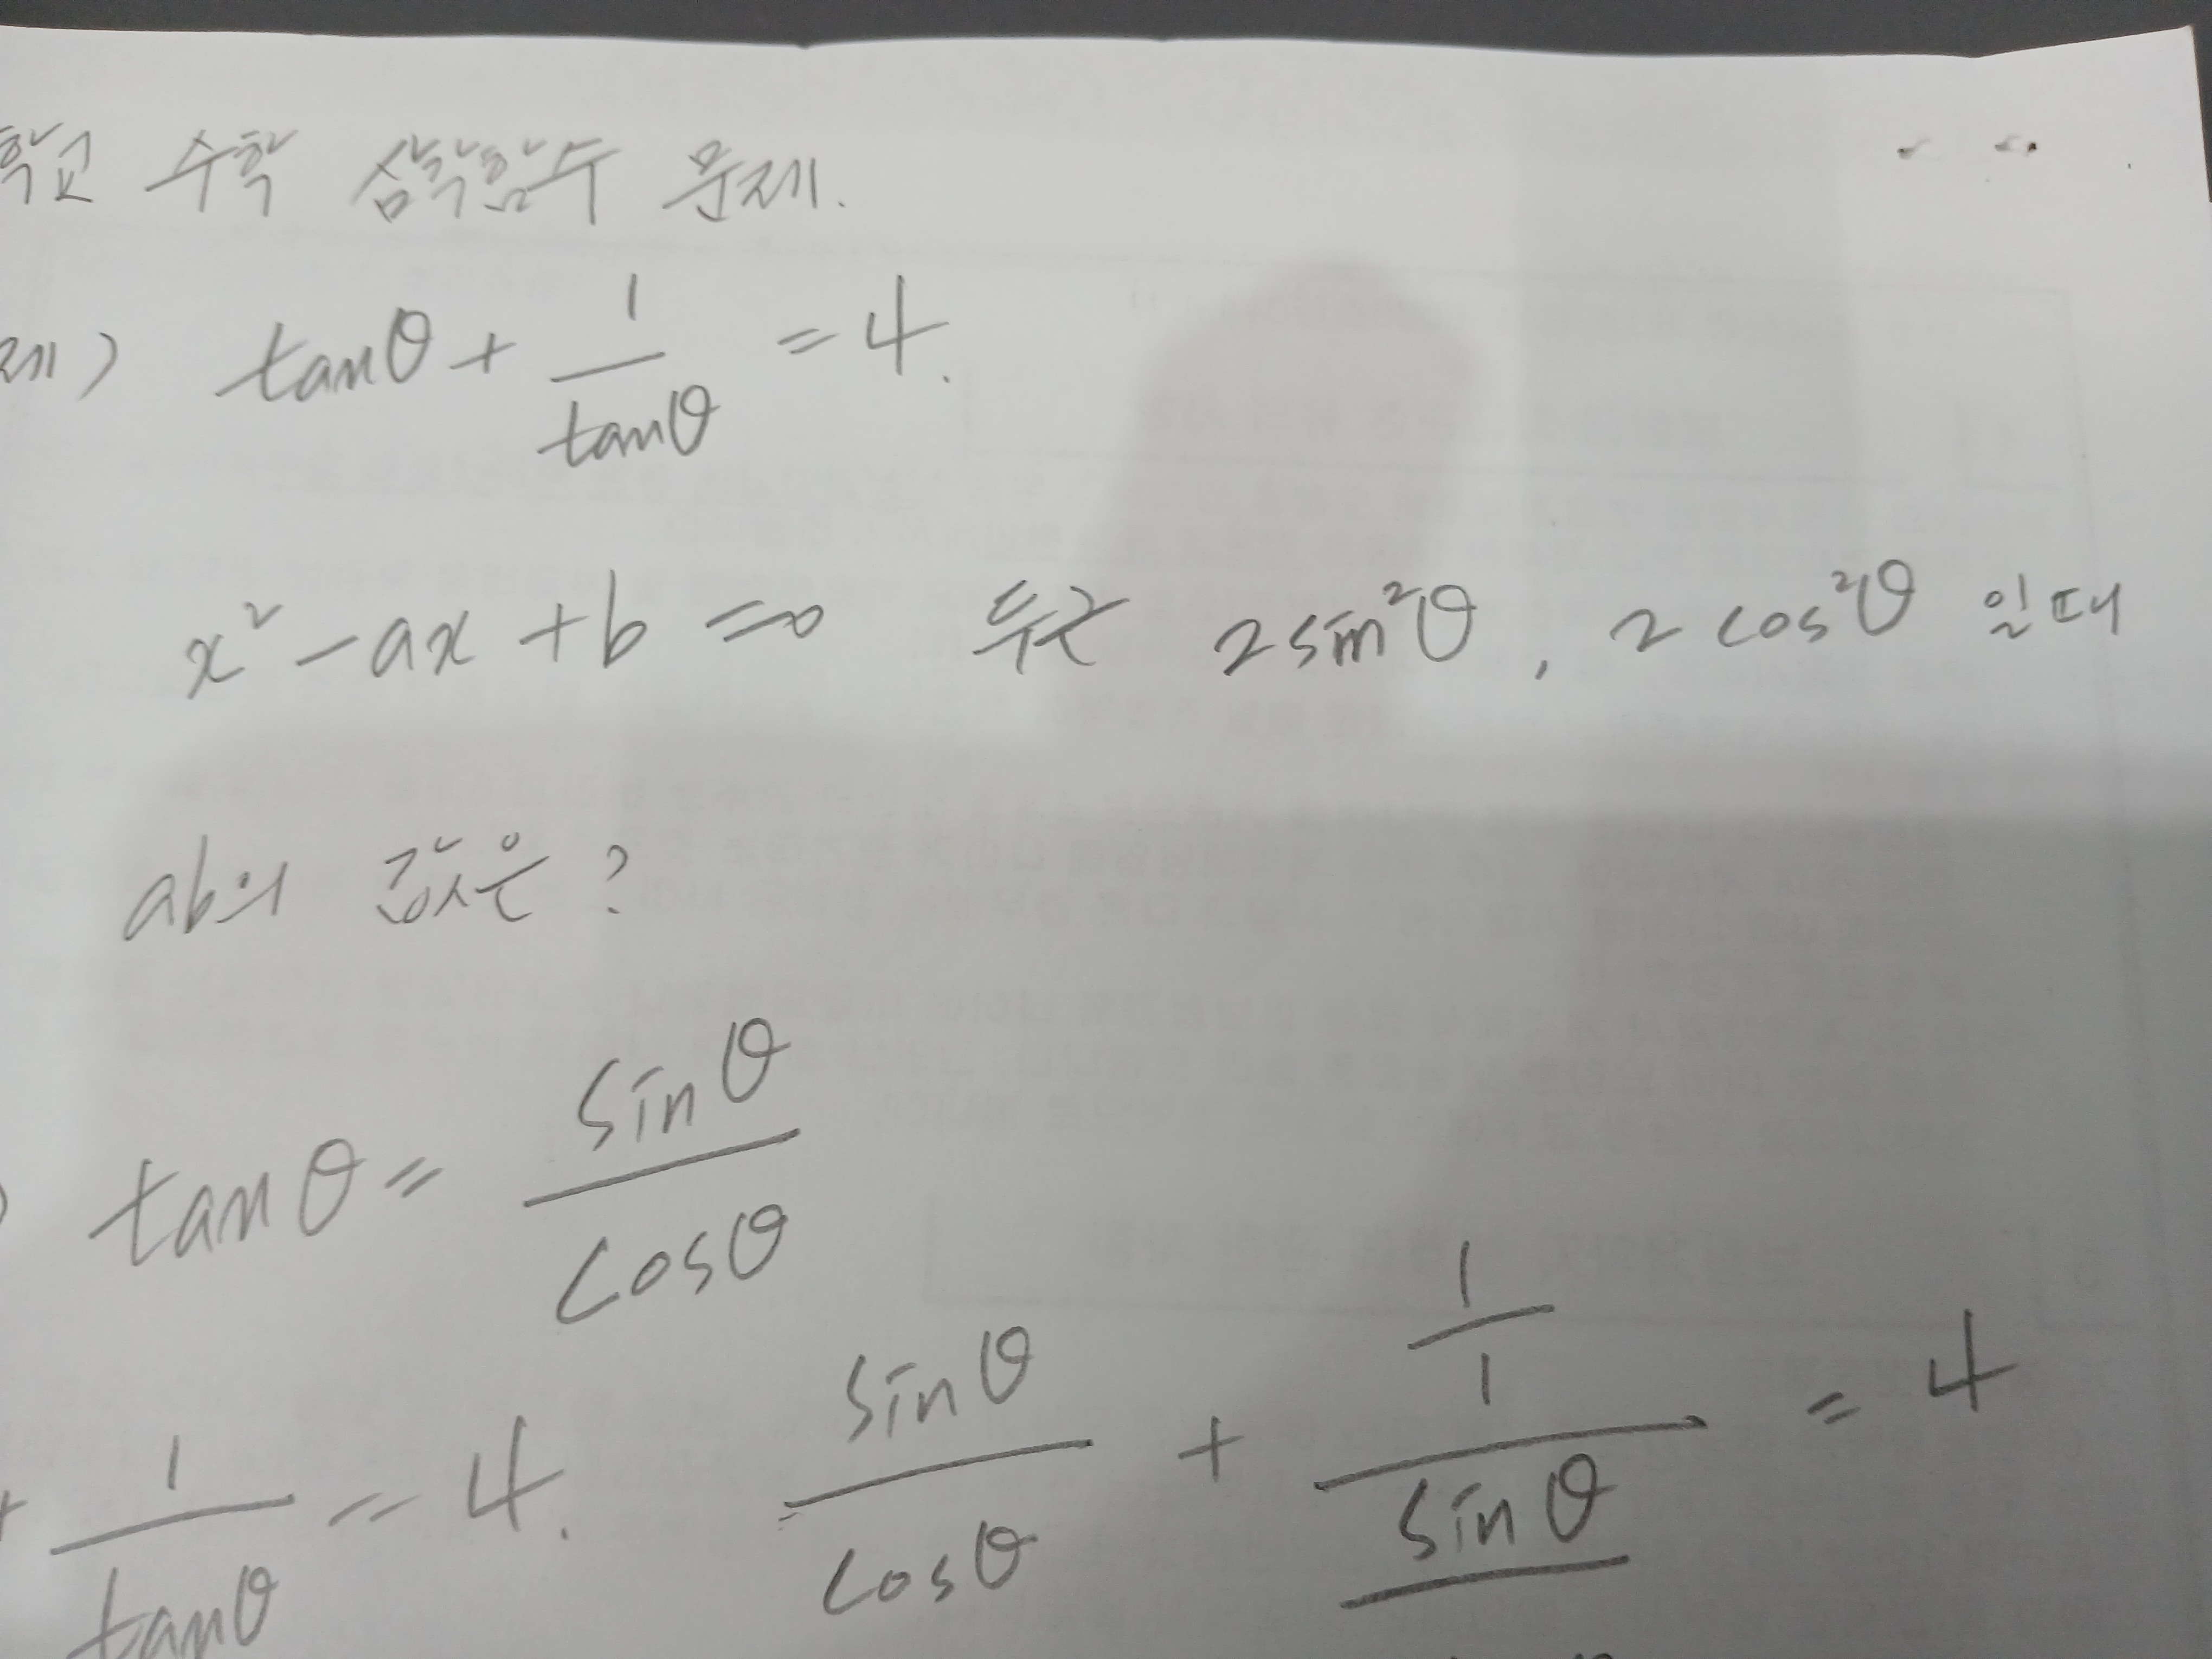 학교 수학 삼각함수 문제.
제) tanθ + 1/tanθ = 4.
x² - ax + b = 0 두근 2sin²θ, 2cos²θ 일때
ab의 값은?
) tanθ = sinθ/cosθ
+ 1/tanθ = 4. sinθ/cosθ + (1/1)/(sinθ/ = 4